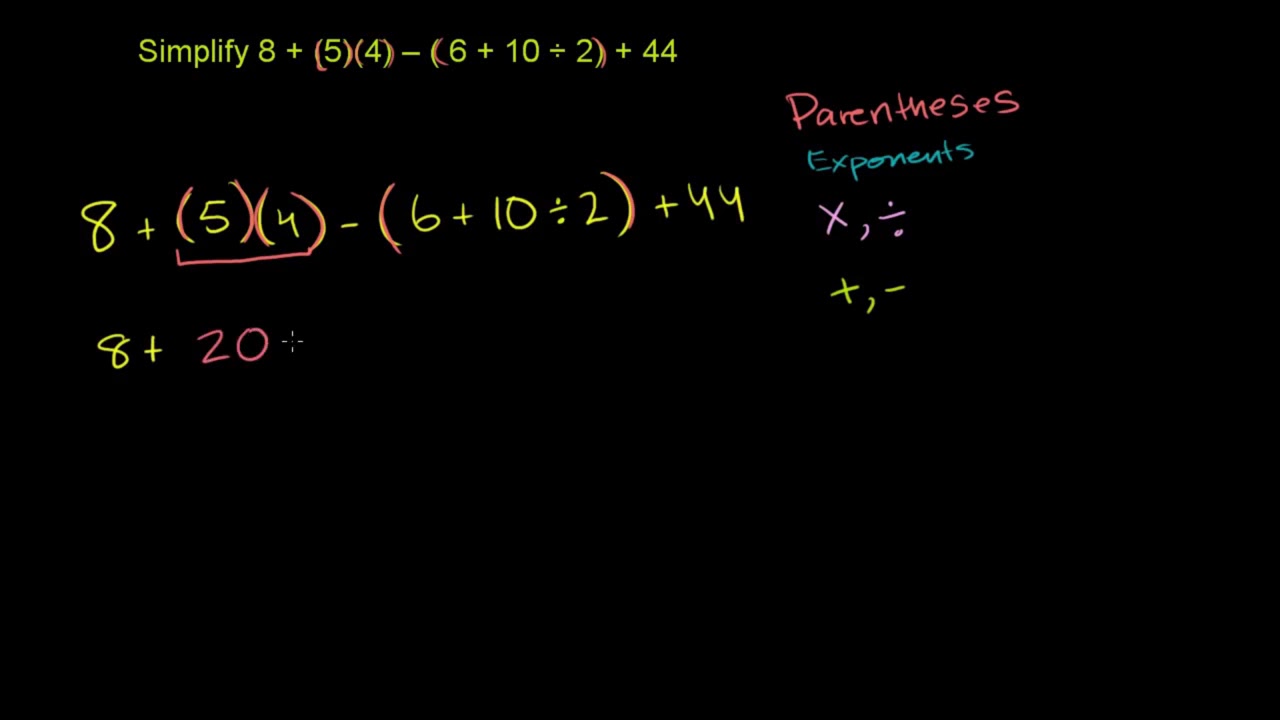 Simplify 8 + (5)(4) – (6 + 10 ÷ 2) + 44
Parentheses
Exponents
8 + (5)(4) - (6 + 10 ÷ 2) + 44
×, ÷
+, -
8 + 20